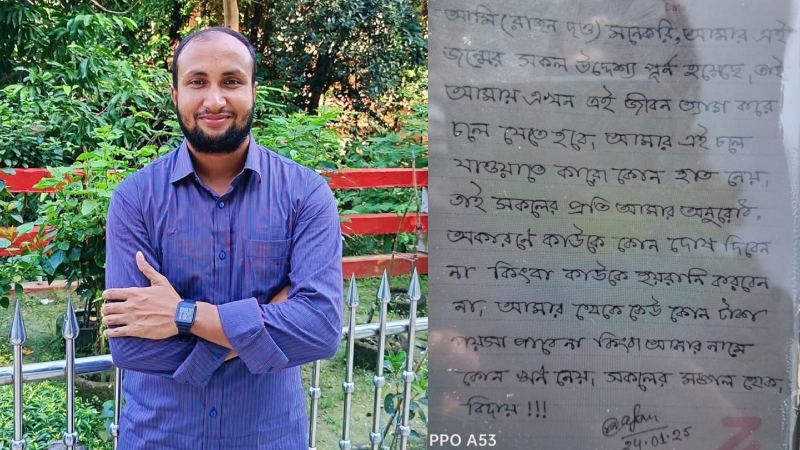 আমি (রাহুল দত্ত) মনেকরি, আমার এই
জন্মের সকল উদ্দেশ্য পূর্ন হয়েছে, তাই
আমায় এখন এই জীবন ত্যাগ করে
চলে যেতে হবে, আমার এই চলে
যাওয়াতে কারো কোন হাত নেয়,
তাই সকলের প্রতি আমার অনুরোধ,
অকারনে কাউকে কোন দোষ দিবেন
না কিংবা কাউকে হয়রানি করবেন
না, আমার থেকে কেউ কোন টাকা
পয়সা পাবে না কিংবা আমার নামে
কোন ঋন নেয়। সকলের মঙ্গল হোক,
বিদায় !!!
24.01.25
PPO A53